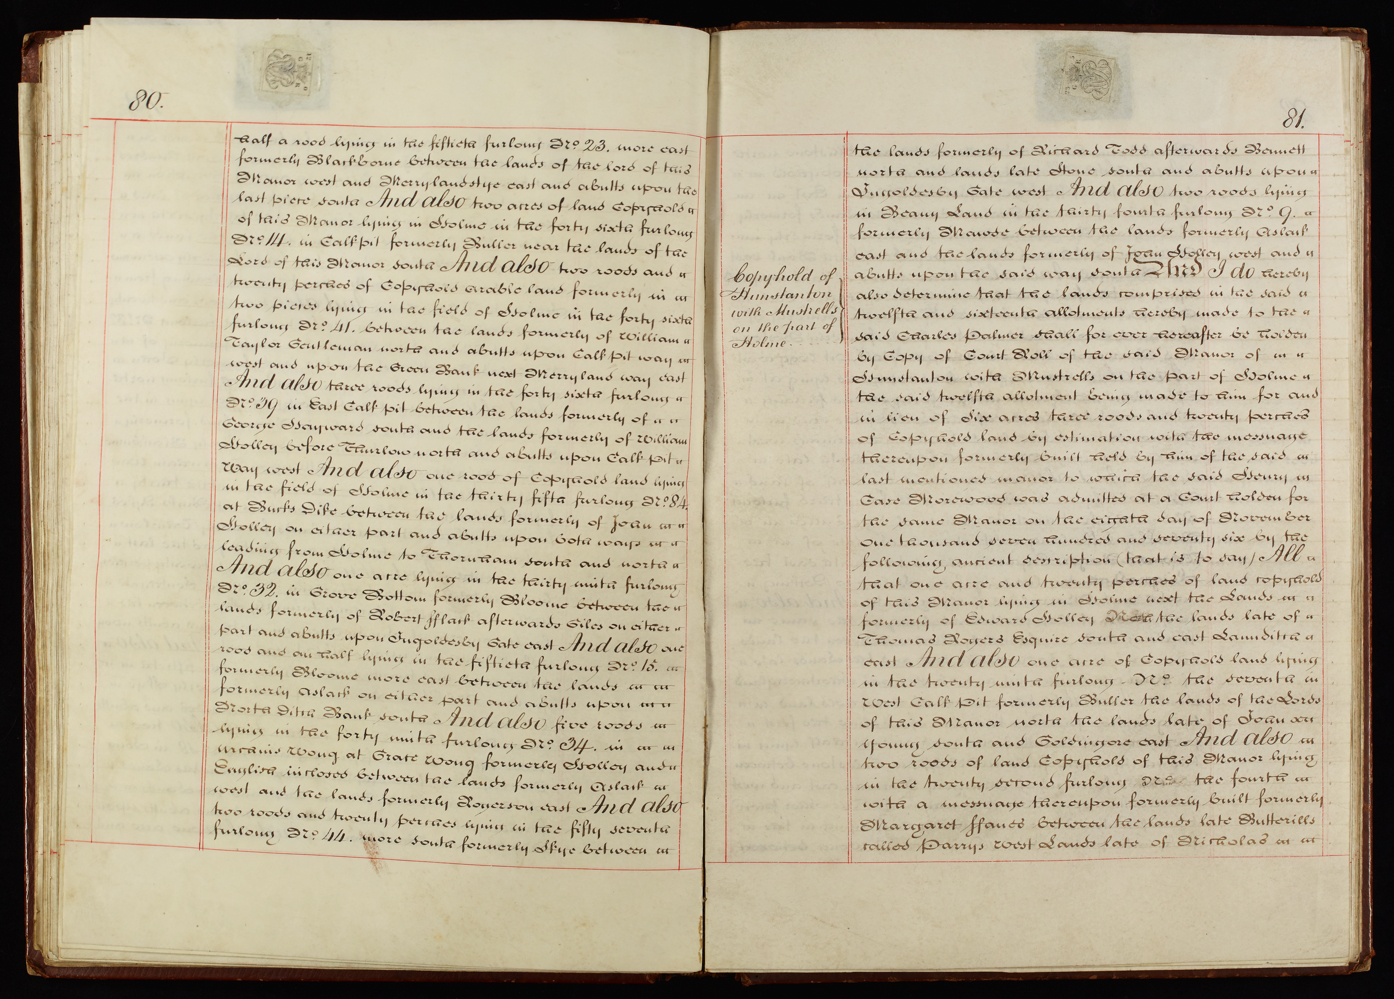 80.
half a rood lying in the fiftieth furlong No. 23. more east
formerly Blackborne between the lands of the lord of this
Manor west and Merrylandstye east and abutts upon the
last piece south And also two acres of land Copyhold
of this Manor lying in Holme in the forty sixth furlong
No. 14. in Calk pit formerly Buller near the lands of the
Lord of this Manor south And also two roods and
twenty perches of Copyhold arable land formerly in
two pieces lying in the field of Holme in the forty sixth
furlong No. 41. between the lands formerly of William
Taylor Gentleman north and abutts upon Calk pit way
west and upon the Green Bank next Merryland way east
And also three roods lying in the forty sixth furlong
No. 39 in East Calk pit between the lands formerly of
George Hayward south and the lands formerly of William
Holley before Thurlow north and abutts upon Calk pit
Way west And also one rood of Copyhold land lying
in the field of Holme in the thirty fifth furlong No. 84.
at Bucks Dike between the lands formerly of John
Holley on either part and abutts upon both ways
leading from Holme to Thornham south and north
And also one acre lying in the thirty ninth furlong
No. 32. in Grove Bottom formerly Bloome between the
lands formerly of Robert fflack afterwards Giles on either
part and abutts upon Ingoldesby Gate east And also one
rood and an half lying in the fiftieth furlong No. 15.
formerly Bloome more east between the lands
formerly Aslack on either part and abutts upon
North Ditch Bank south And also five roods
lying in the forty ninth furlong No. 34. in
Wong at Grate Wong formerly Holley and
English inclosed between the lands formerly Aslack
west and the lands formerly Rogerson east And also
two roods and twenty perches lying in the fifty seventh
furlong No. 44. more south formerly Skye between
81.
the lands formerly of Richard Todd afterwards Bennett
north and lands late Stone south and abutts upon
Ingoldesby Gate west And also two roods lying
in Beany Land in the thirty fourth furlong No. 9.
formerly Mawde between the lands formerly Aslack
east and the lands formerly of John Holley west and
abutts upon the said way south And I do hereby
also determine that the lands comprised in the said
twelfth and sixteenth allotments hereby made to the
said Charles Palmer shall for ever hereafter be holden
by Copy of Court Roll of the said Manor of
Hunstanton with Mustrells on the part of Holme
the said twelfth allotment being made to him for and
in lieu of Six acres three roods and twenty perches
of Copyhold land by estimation with the messuage
thereupon formerly built held by him of the said
last mentioned manor to which the said Henry
Case Morewood was admitted at a Court holden for
the same Manor on the eighth day of November
one thousand seven hundred and seventy six by the
following ancient description (that is to say) All
that one acre and twenty perches of land copyhold
of this Manor lying in Holme next the Lands
formerly of Edward Holley the lands late of
Thomas Rogers Esquire south and east Lamditch
east And also one acre of Copyhold land lying
in the twenty ninth furlong No. the seventh in
West Calk Pit formerly Buller the lands of the Lords
of this Manor north the lands late of John
Young south and Goldingore east And also
two roods of land Copyhold of this Manor lying
in the twenty second furlong No. the fourth
with a messuage thereupon formerly built formerly
Margaret ffanes between the lands late Butterills
called Parrys West Lands late of Nicholas
Copyhold of
Hunstanton
with Mustrells
on the part of
Holme